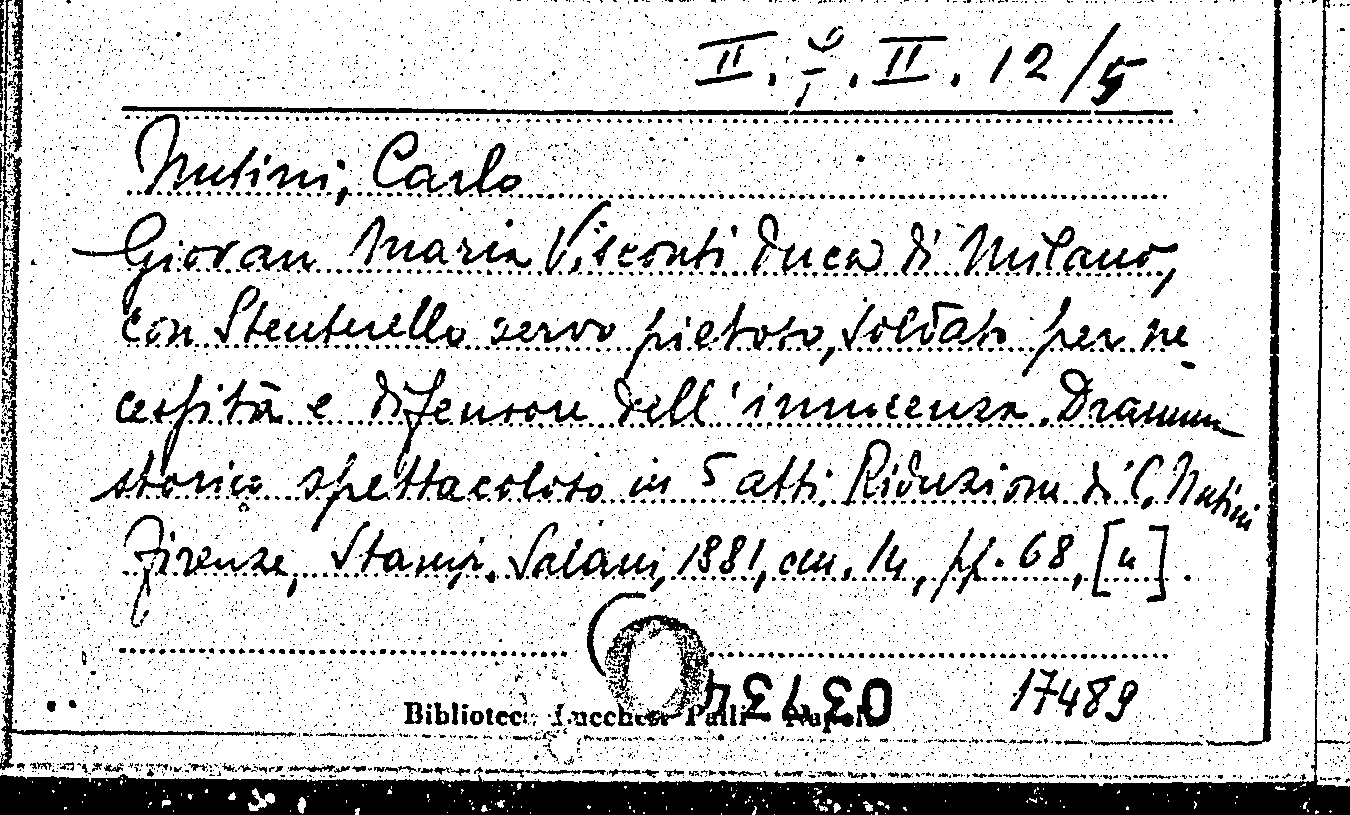 II. II. 12/5
Nutini, Carlo
Giovan Maria Visconti duca di Milano,
con Stenterello servo pietoso, soldato per ne-
cessità e difensore dell'innocenza. Dramma
storico spettacoloso in 5 atti. Riduzione di C. Nutini
Firenze, Stamp. Salani, 1881, cm. 14, pp. 68, [4].
17489
Biblioteca Lucchesi Palli - Napoli